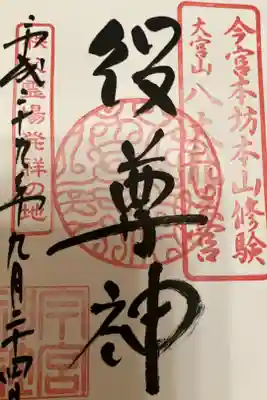 今宮本坊本山修験
大宮山
役尊神
秩父霊場発祥の地
平成二十九年九月二十四日